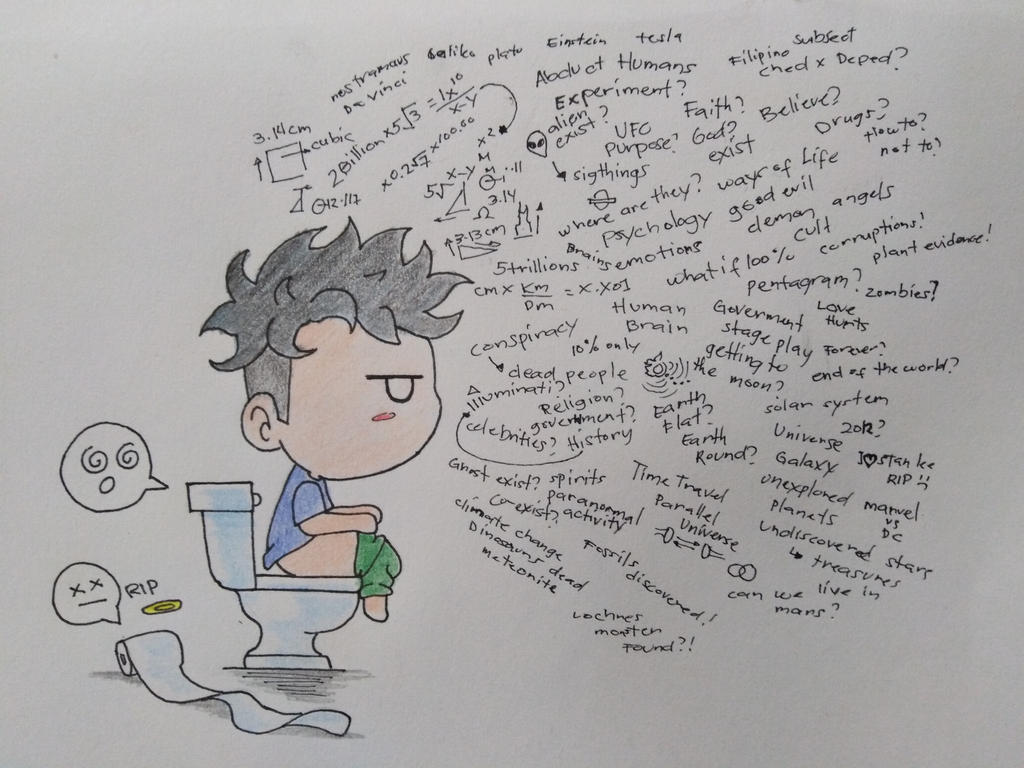 nostramaus Galileo plato Einstein tesla
Da vinci
3.14 cm
cubic
2Billion x5√3 = 1x¹⁰
x-y
x0.257 x100.00
12.117
x²
5√x-y
M
3.14
Ω
3.13cm
5trillions
cm x Km = x.x01
Dm
Abduct Humans
Experiment?
alien
exist?
UFC
Purpose?
sigthings
Faith?
God?
exist
Believe?
Filipino subsect
ched x Deped?
Drugs?
How to?
not to?
where are they?
ways of Life
Psychology
good evil
demon angels
Brains emotions
cult
what if 100%
corruptions!
plant evidence!
pentagram?
zombies?
conspiracy
Human
Brain
10% only
Goverment
stage play
Love
Hurts
Forever?
dead people
getting to
the moon?
end of the world?
Illuminati?
Religion?
government?
celebrities?
History
Earth
Flat?
Earth
Round?
solar system
2012?
Universe
Galaxy
I♡stan lee
RIP
Ghost exist? spirits
paranormal
activity
co-exist?
Time Travel
Parallel
Universe
unexplored
Planets
marvel
vs
DC
undiscovered stars
treasures
climate change
Dinosaurs dead
meteorite
Fossils
discovered!
can we live in
mars?
Lochnes
monster
Found?!
RIP